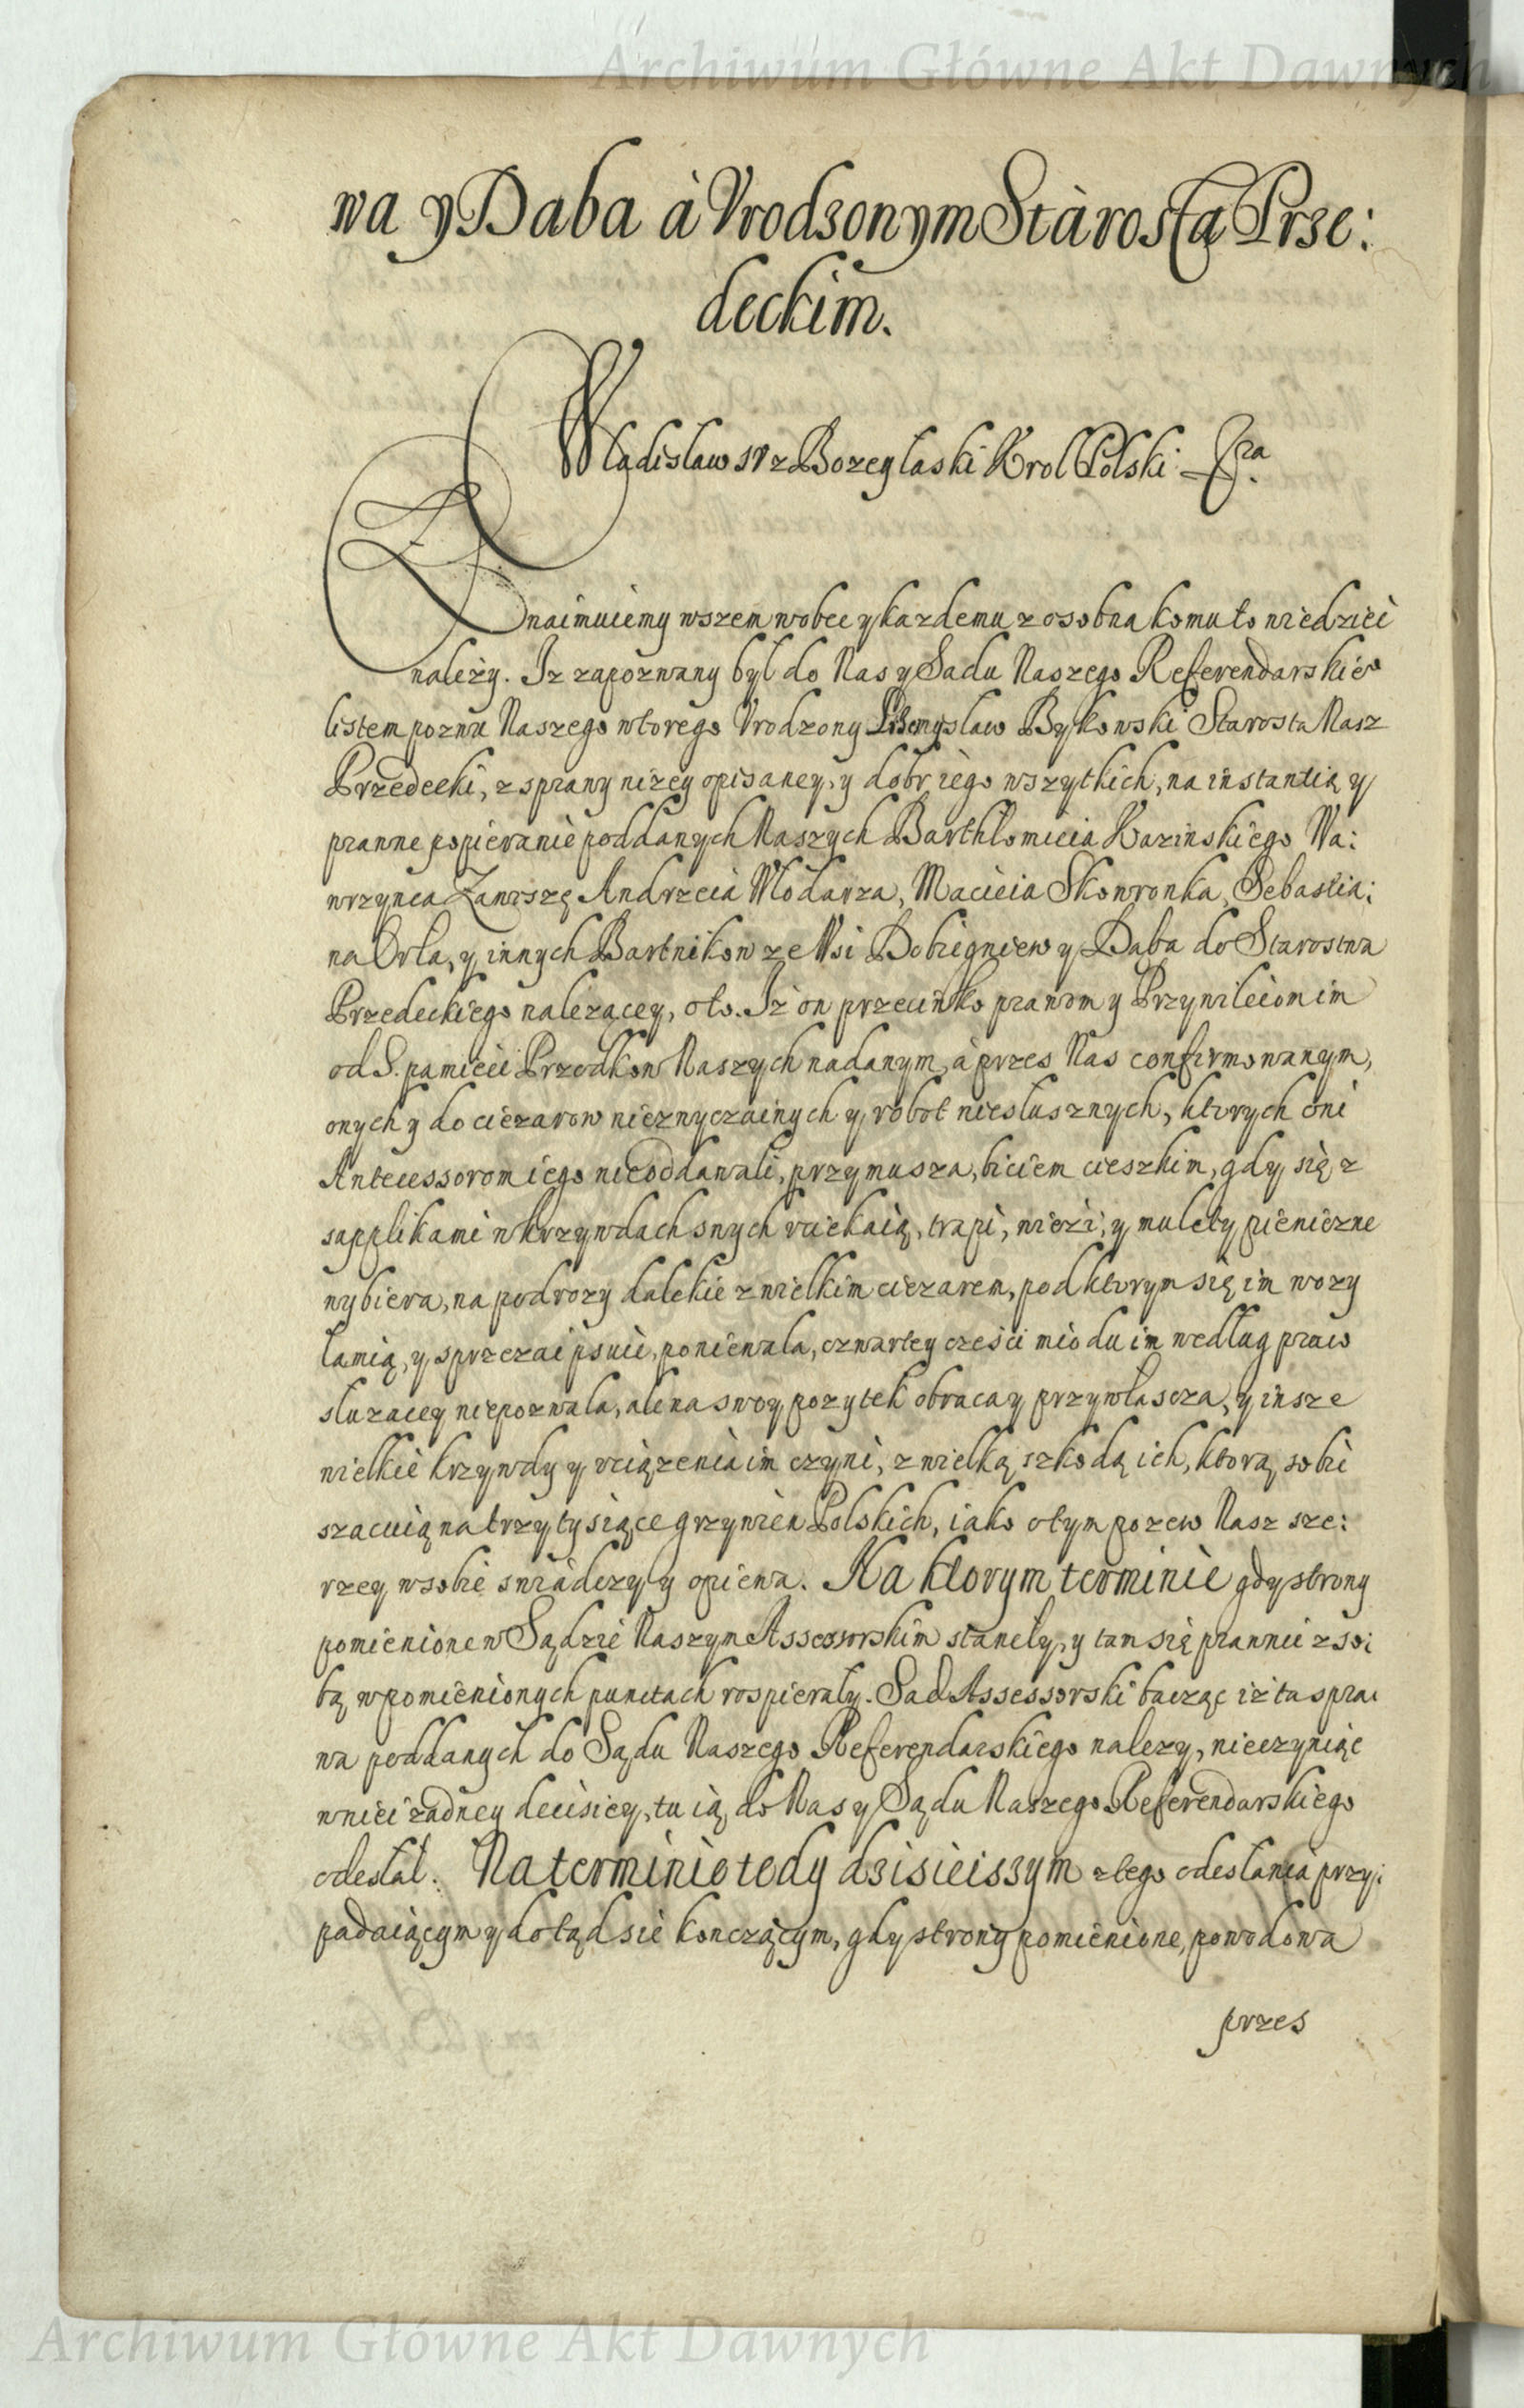 Archiwum Główne Akt Dawnych
wa y Daba à Vrodzonym Stàrostą Prze:
deckim.
Władisław IV z Bozey łaski Krol Polski &ra.
Znaimuiemy wszem wobec y kazdemu z osobna komu to wiedzieć
należy. Iz zapozwany był do Nas y Sadu Naszego Referendarskiego
listem pozwu Naszego wtorego Vrodzony Przemysław Bykowski Starosta Nasz
Przedecki, z sprawy nizey opisaney, y dobr iego wszytkich, na instantią y
prawne popieranie poddanych Naszych Barthłomieia Kazinskiego Wa:
wrzynca Zawiszę Andrzeia Włodarza, Macieia Skowronka, Sebastia:
na Orła, y innych Bartnikow ze Wsi Dobiegniew y Daba do Starostwa
Przedeckiego nalezącey, oto. Iż on przeciwko prawom y Przywileiom im
od S. pamieci Przodkow Naszych nadanym, à przes Nas confirmowanym,
onych y do ciezarow niezwyczainych y robot niesłusznych, ktorych oni
Antecessorom iego nieoddawali, przymusza, biciem cieszkim, gdy się z
supplikami w krzywdach swych vciekaią, trapi, wiezi, y mulcty pieniezne
wybiera, na podrozy dalekie z wielkim ciezarem, pod ktorym się im wozy
łamią, y sprzezai psuie, poniewala, czwartey części miodu im według praw
słuzacey niepozwala, ale na swoy pozytek obraca y przywłascza, y insze
wielkie krzywdy y vciązenia im czyni, z wielką szkodą ich, ktorą sobie
szacuią na trzy tysiące grzywien Polskich, iako o tym pozew Nasz sze:
rzey w sobie swiadczy y opiewa. Na ktorym terminie gdy strony
pomienione w Sądzie Naszym Assessorskim staneły, y tam się prawnie z so:
bą w pomienionych punctach rospierały. Sad Assessorski bacząc iż ta spra:
wa poddanych do Sądu Naszego Referendarskiego nalezy, nieczyniąc
w niei żadney decisiey, tu ią do Nas y Sądu Naszego Referendarskiego
odesłał. Na terminie tedy dzisieiszym z tego odesłania przy:
padaiącym y dotąd sie konczącym, gdy strony pomienione, powodowa
przes
Archiwum Główne Akt Dawnych